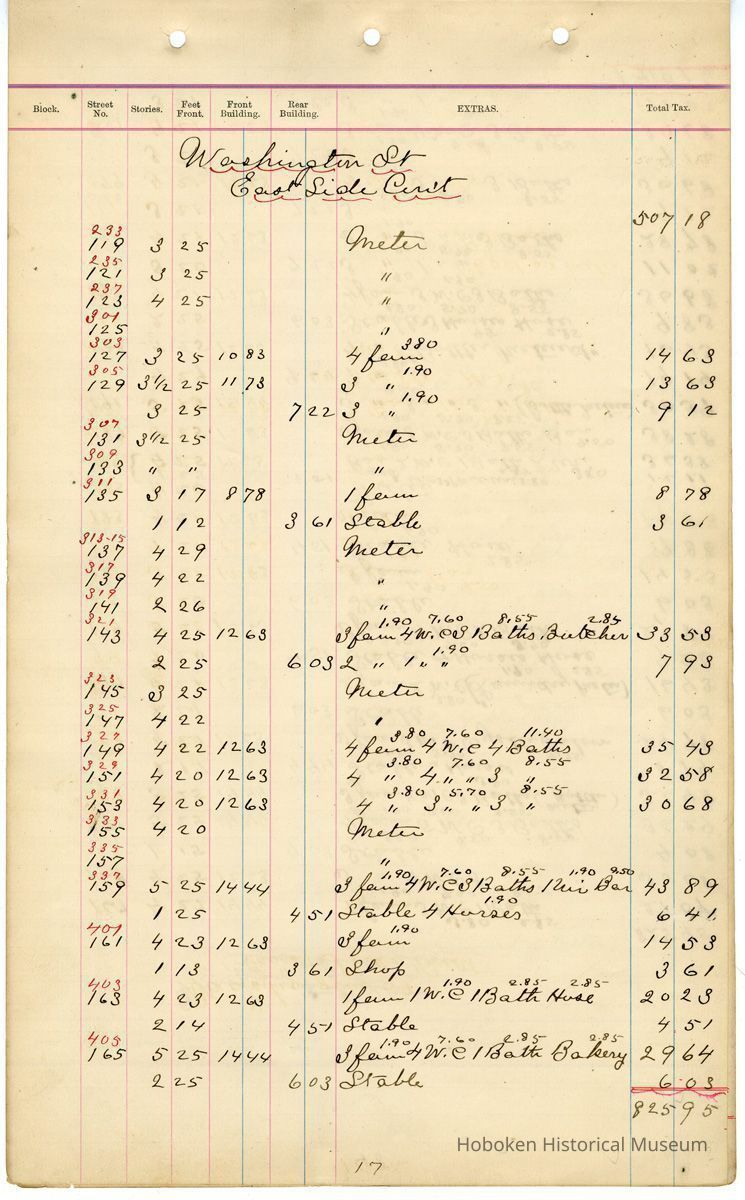 Block. Street No. Stories. Feet Front. Front Building. Rear Building. EXTRAS. Total Tax.
Washington St
East Side Con't
507 18
233
119 3 25 Meter
235
121 3 25 "
237
123 4 25 "
301
125 "
303 3.80
127 3 25 10 83 4 fam 14 63
305 1.90
129 3 1/2 25 11 73 3 " 13 63
1.90
3 25 7 22 3 " 9 12
307
131 3 1/2 25 Meter
309
133 " " "
311
135 3 17 8 78 1 fam 8 78
1 12 3 61 Stable 3 61
313-15
137 4 29 Meter
317
139 4 22 "
319
141 2 26 "
321 1.90 7.60 8.55 2.85
143 4 25 12 63 3 fam 4 W.C 3 Baths Butcher 33 53
1.90
2 25 6 03 2 " 1 " " 7 93
323
145 3 25 Meter
325
147 4 22 "
327 3.80 7.60 11.40
149 4 22 12 63 4 fam 4 W.C 4 Baths 35 43
329 3.80 7.60 8.55
151 4 20 12 63 4 " 4 " " 3 " 32 58
331 3.80 5.70 8.55
153 4 20 12 63 4 " 3 " " 3 " 30 68
333
155 4 20 Meter
335
157 "
337 1.90 7.60 8.55 1.90 9.50
159 5 25 14 44 3 fam 4 W.C 3 Baths 1 Uri Bar 43 89
1.90
1 25 4 51 Stable 4 Horses 6 41
401 1.90
161 4 23 12 63 3 fam 14 53
1 13 3 61 Shop 3 61
403 1.90 2.85 2.85
163 4 23 12 63 1 fam 1 W.C 1 Bath Hose 20 23
2 14 4 51 Stable 4 51
405 1.90 7.60 2.85 2.85
165 5 25 14 44 3 fam 4 W.C 1 Bath Bakery 29 64
2 25 6 03 Stable 6 03
825 95
Hoboken Historical Museum
17